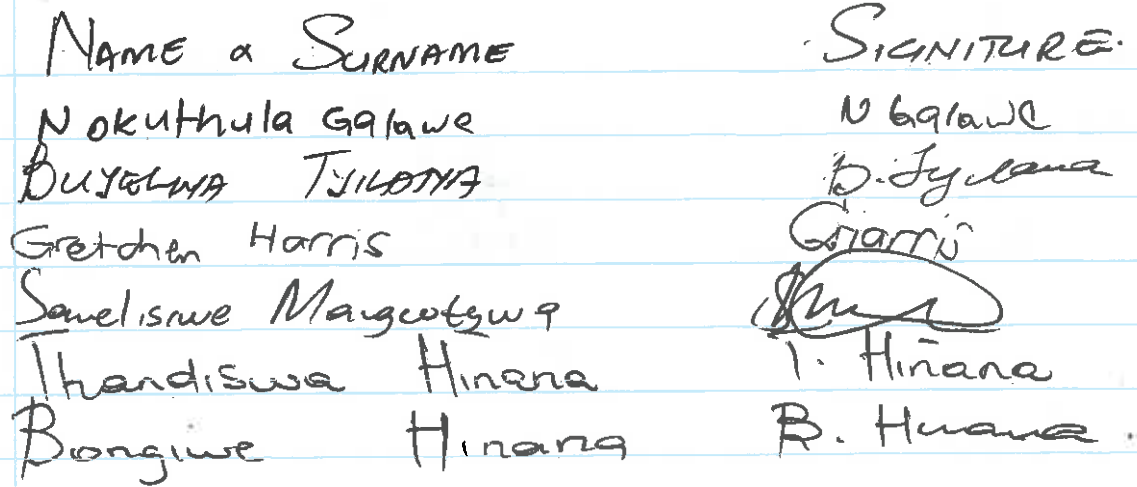 NAME & SURNAME SIGNITURE.
Nokuthula Galawe N Galawe
BUYELWA TJILANA B. Tyilana
Gretchen Harris GHarris
Thandiswa Hinana T. Hinana
Bongiwe Hinana B. Hinana